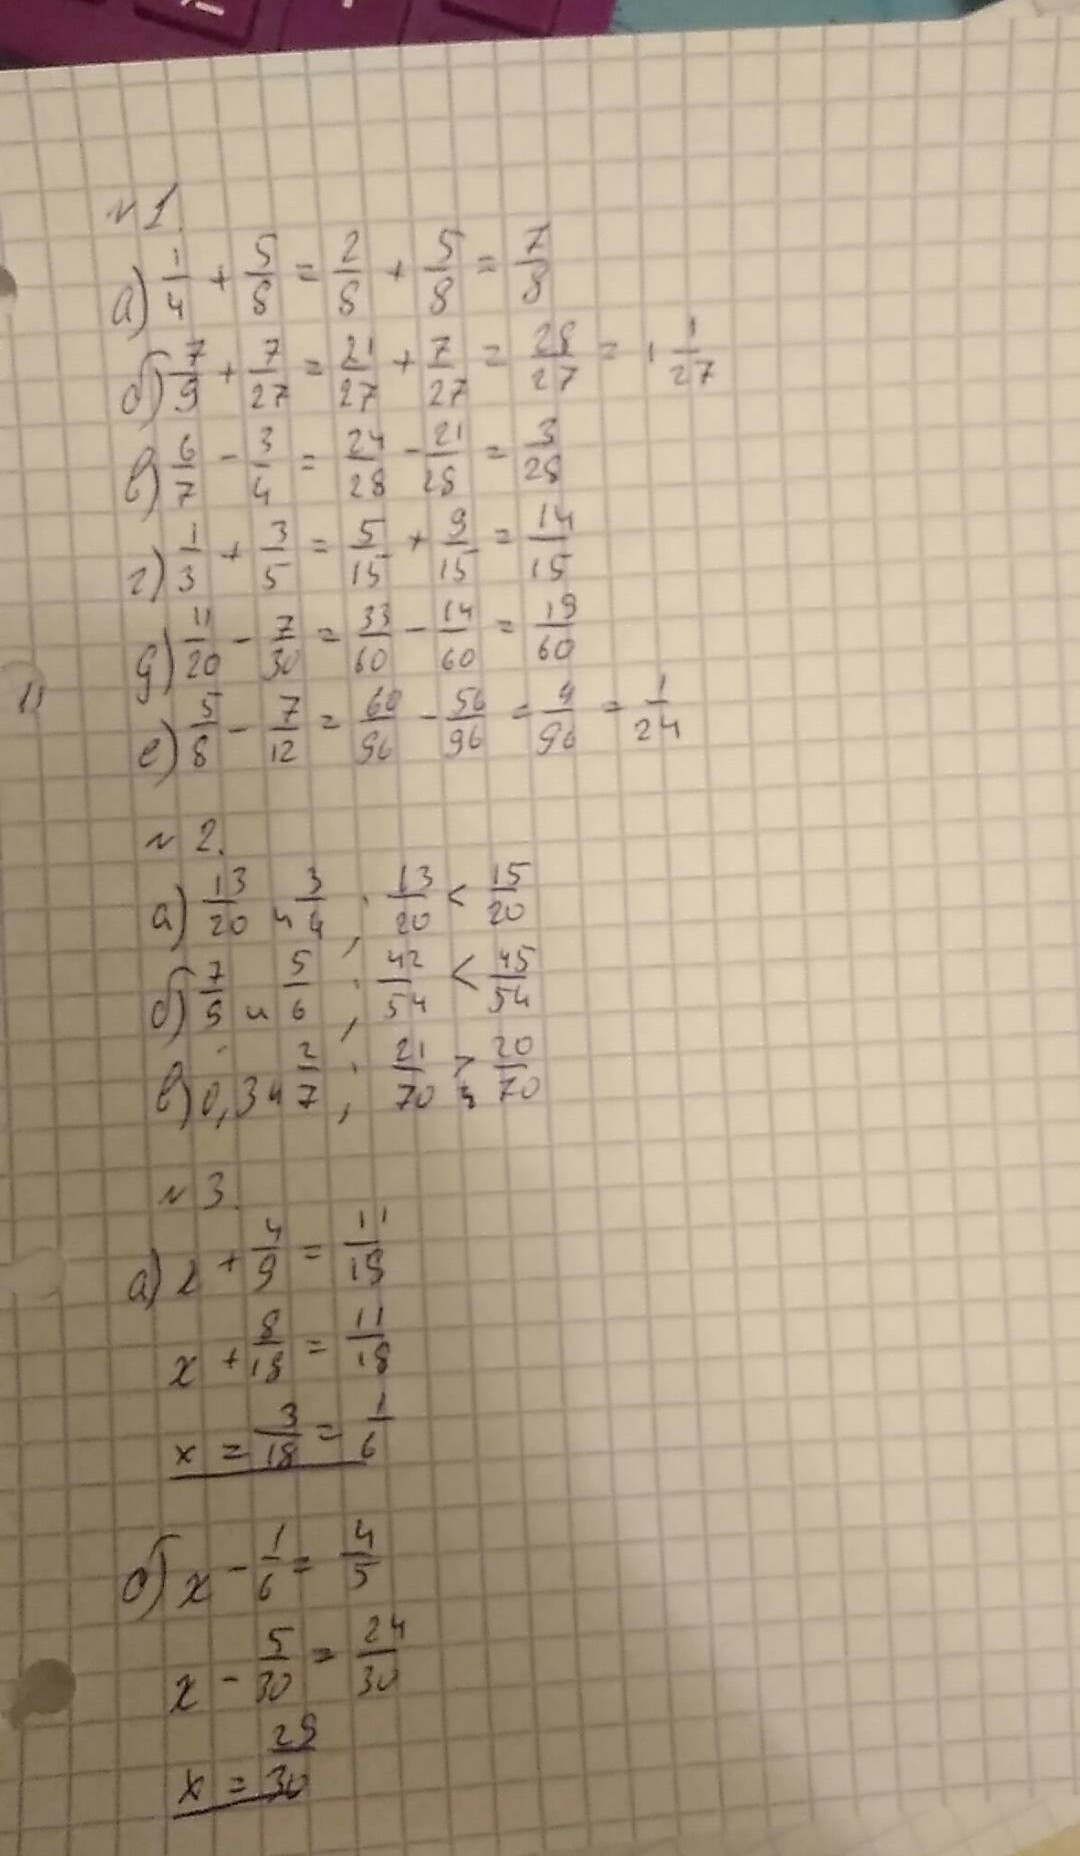 № 1.
а) 1/4 + 5/8 = 2/8 + 5/8 = 7/8
б) 7/9 + 7/27 = 21/27 + 7/27 = 28/27 = 1 1/27
в) 6/7 - 3/4 = 24/28 - 21/28 = 3/28
г) 1/3 + 3/5 = 5/15 + 9/15 = 14/15
д) 11/20 - 7/30 = 33/60 - 14/60 = 19/60
е) 5/8 - 7/12 = 60/96 - 56/96 = 4/96 = 1/24
№ 2.
а) 13/20 и 3/4 ; 13/20 < 15/20
б) 7/9 и 5/6 ; 42/54 < 45/54
в) 0,3 и 2/7 ; 21/70 > 20/70
№ 3.
а) x + 4/9 = 11/18
x + 8/18 = 11/18
x = 3/18 = 1/6
б) x - 1/6 = 4/5
x - 5/30 = 24/30
x = 29/30